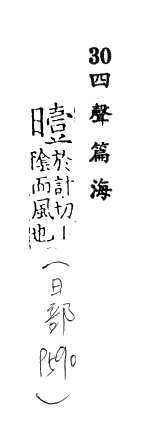 30四聲篇海
曀於計切｜
陰而風也
（日部 P590）